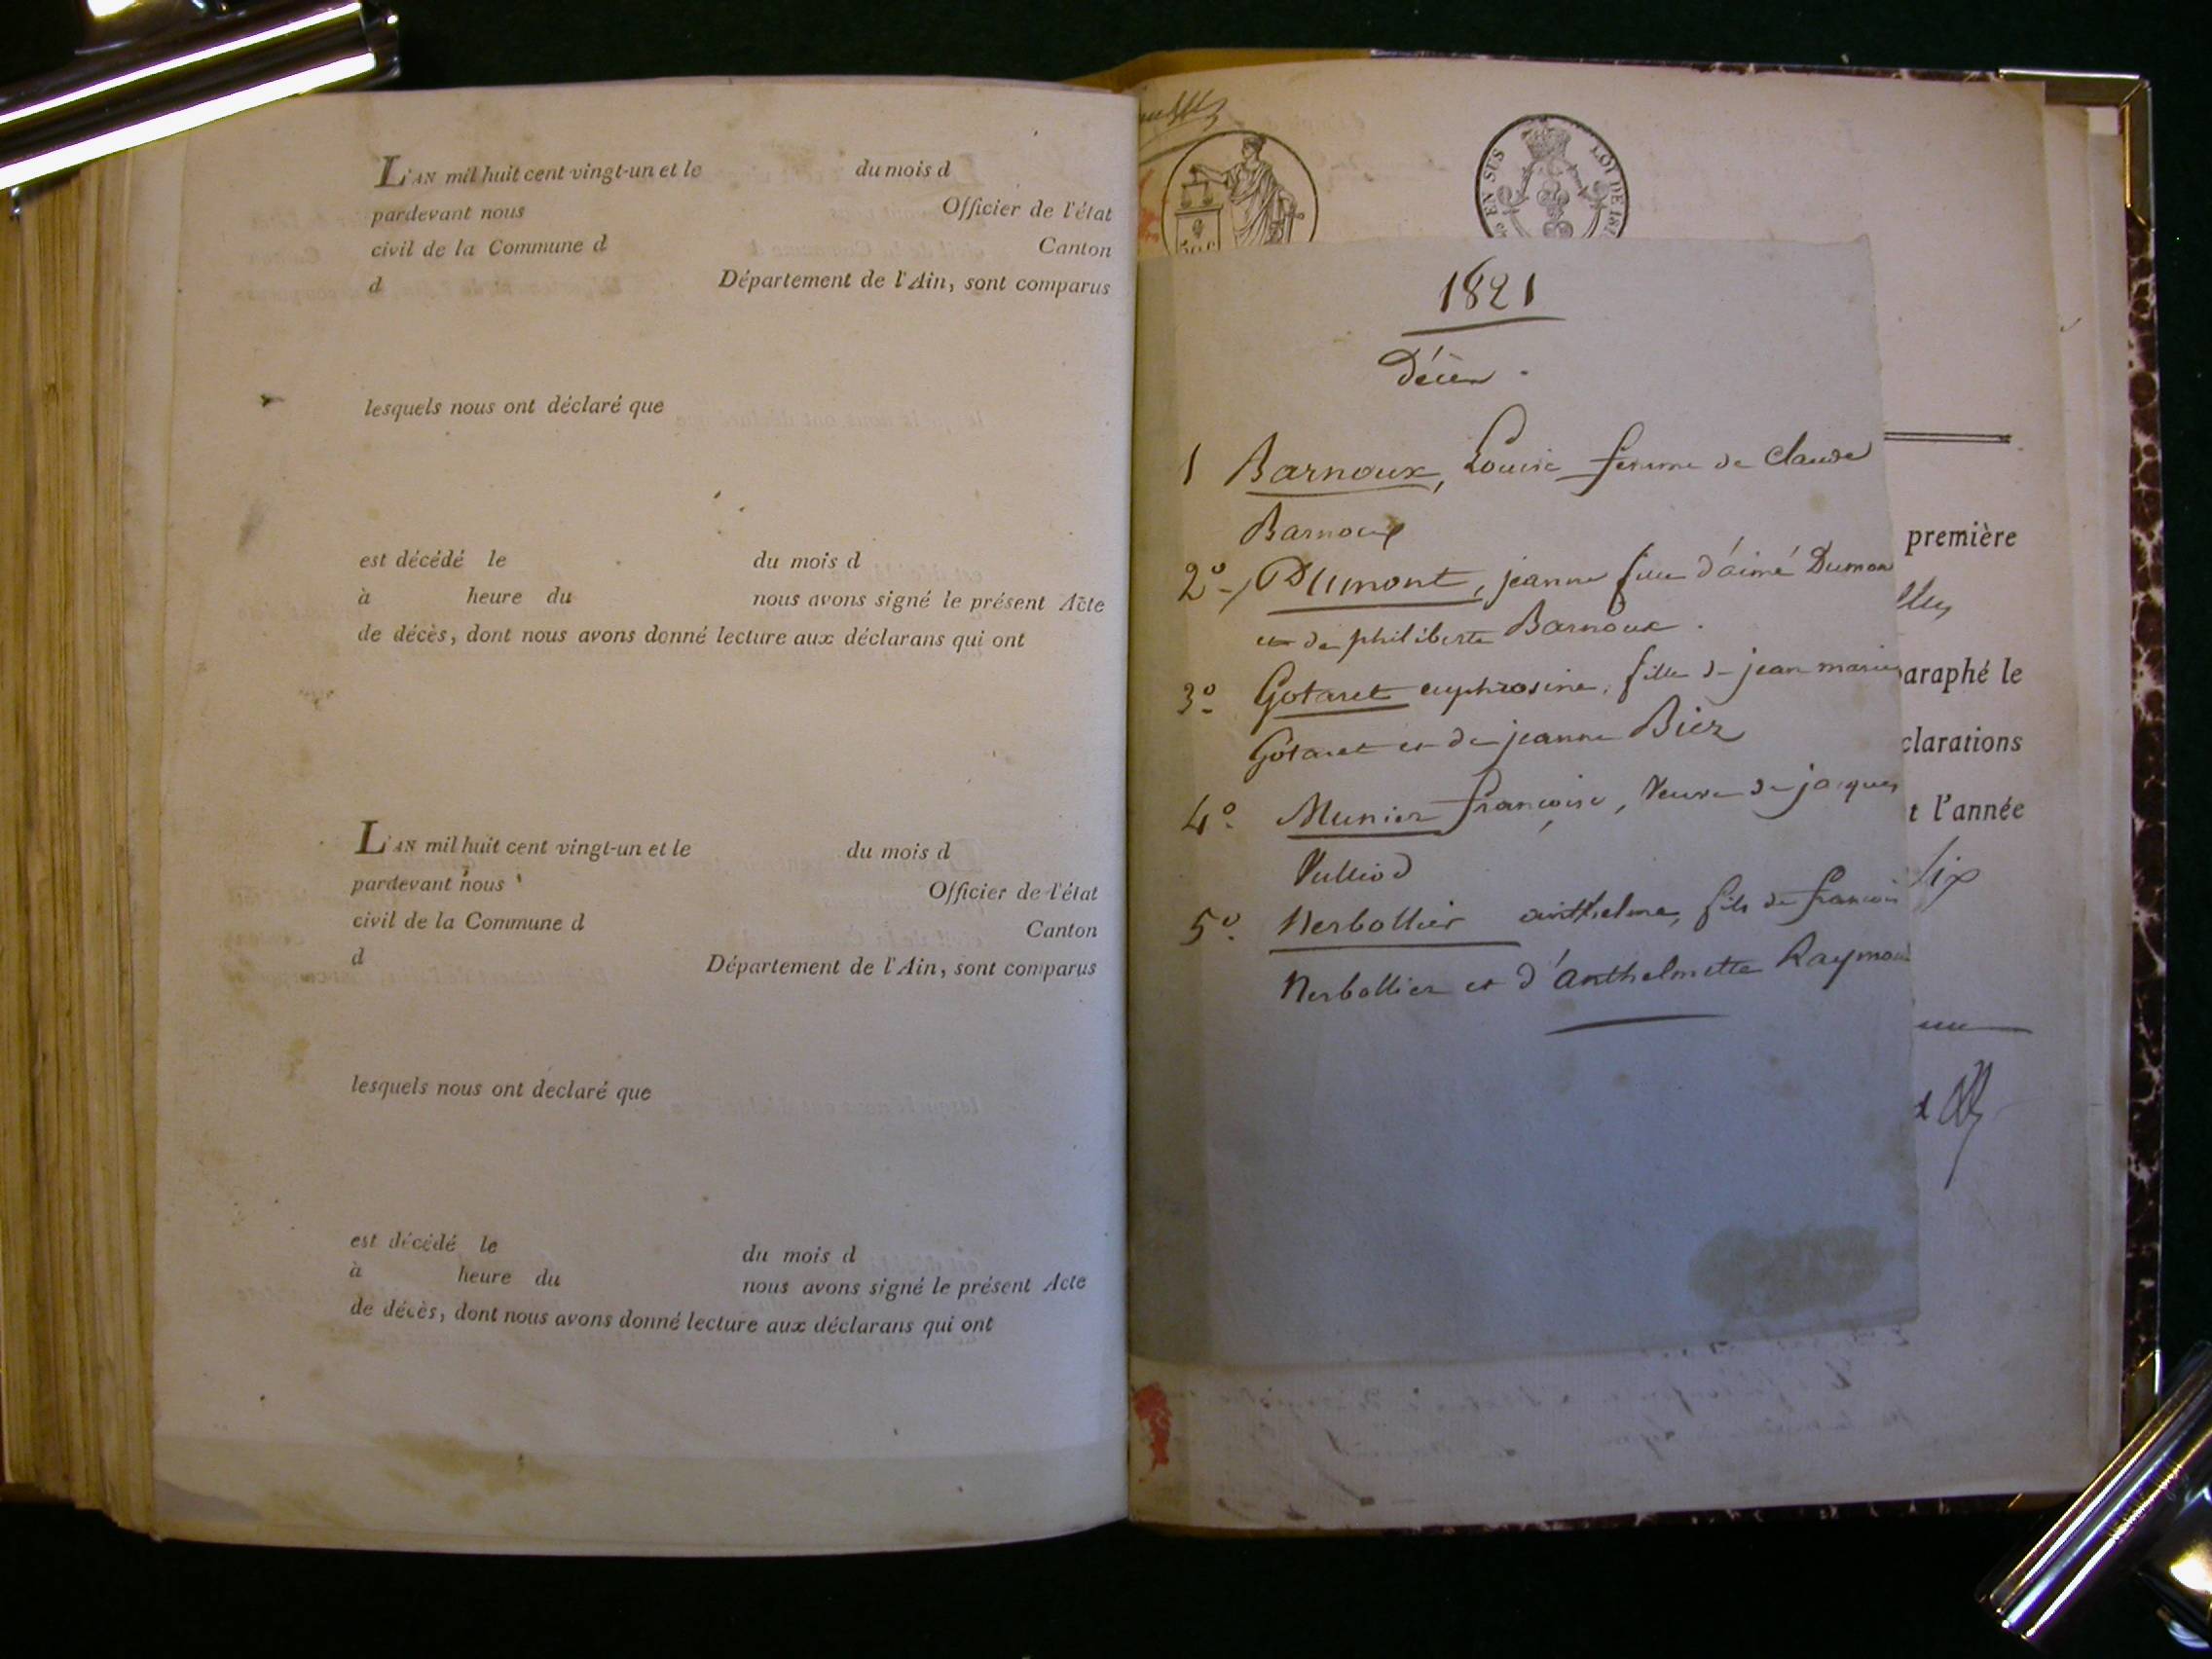 L'AN mil huit cent vingt-un et le du mois d
pardevant nous Officier de l'état
civil de la Commune d Canton
d Département de l'Ain, sont comparus
lesquels nous ont déclaré que
est décédé le du mois d
à heure du nous avons signé le présent Acte
de décès, dont nous avons donné lecture aux déclarans qui ont
L'AN mil huit cent vingt-un et le du mois d
pardevant nous Officier de l'état
civil de la Commune d Canton
d Département de l'Ain, sont comparus
lesquels nous ont declaré que
est décédé le du mois d
à heure du nous avons signé le présent Acte
de décès, dont nous avons donné lecture aux déclarans qui ont
EN SUS LOI DE 181
1821
Décès.
1 Barnoux, Louise femme de Claude
Barnoux
2º Dumont, jeanne fille d'aimé Dumon
et de philiberte Barnoux.
3º Gotaret euphrosine, fille de jean marie
Gotaret et de jeanne Biez
4º Munier françoise, Veuve de jacques
Vulliod
5º Nerbollier anthelme, fils de françois
Nerbollier et d'Anthelmette Raymon
première
araphé le
clarations
t l'année